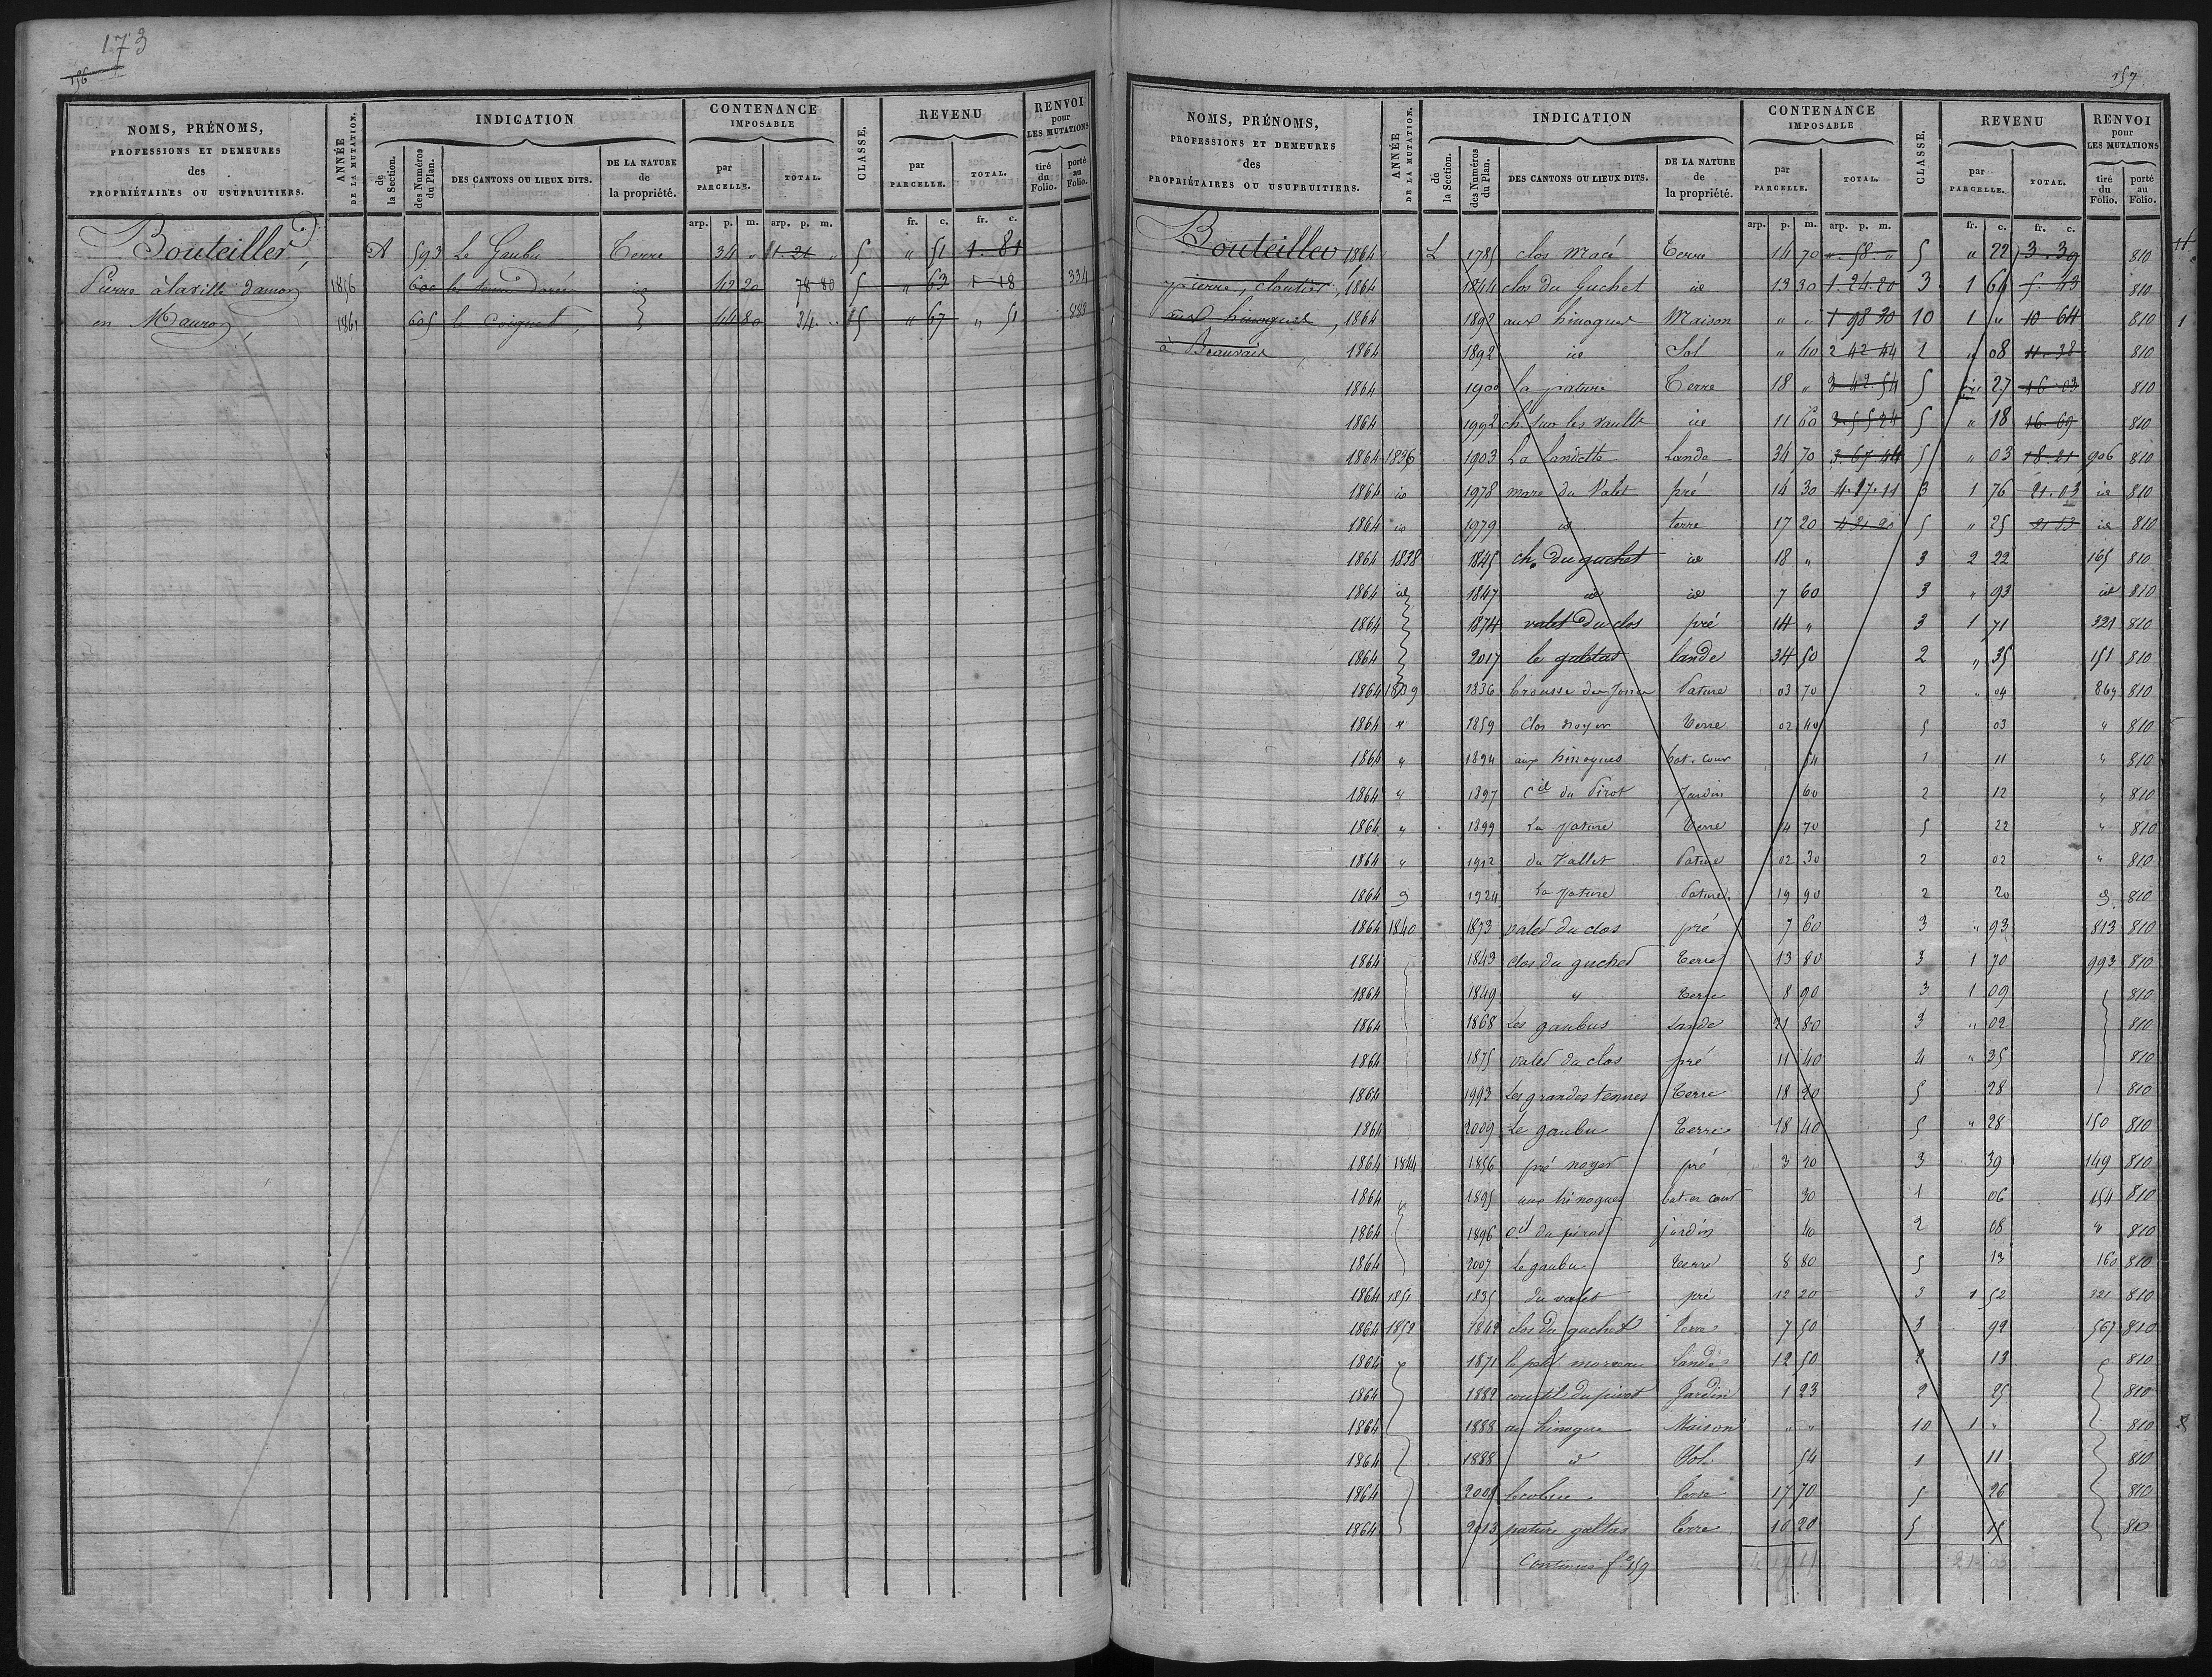 173
156
NOMS, PRÉNOMS, PROFESSIONS ET DEMEURES des PROPRIÉTAIRES OU USUFRUITIERS.
ANNÉE DE LA MUTATION.
INDICATION
de la Section.
des Numéros du Plan.
DES CANTONS OU LIEUX DITS.
DE LA NATURE de la propriété.
CONTENANCE IMPOSABLE
par PARCELLE.
TOTAL.
CLASSE.
REVENU
par PARCELLE.
TOTAL.
RENVOI pour LES MUTATIONS
tiré du Folio.
porté au Folio.
arp. p. m. arp. p. m. fr. c. fr. c.
Bouteiller, A 593 Le Gaubu Terre 34 " 1. 21 " 5 " 51 1. 81
Pierre à la ville Damon 1856 600 les id 42 20 78 80 5 " 63 1 18 334
en Mauron, 1861 605 le Coignet 44 80 34 " 5 " 67 " 51 883
157
NOMS, PRÉNOMS, PROFESSIONS ET DEMEURES des PROPRIÉTAIRES OU USUFRUITIERS.
ANNÉE DE LA MUTATION.
INDICATION
de la Section.
des Numéros du Plan.
DES CANTONS OU LIEUX DITS.
DE LA NATURE de la propriété.
CONTENANCE IMPOSABLE
par PARCELLE.
TOTAL.
CLASSE.
REVENU
par PARCELLE.
TOTAL.
RENVOI pour LES MUTATIONS
tiré du Folio.
porté au Folio.
arp. p. m. arp. p. m. fr. c. fr. c.
Bouteiller 1864 L 1785 clos Macé Terre 14 70 ". 58. " 5 " 22 3. 39 810
pierre, cloutier, 1864 1844 clos du Guchet id 13 30 1. 24. 20 3 1 64 5. 43 810
aux hinogues, 1864 1892 aux hinogues Maison " " 1 98 30 10 1 " 10 64 810 1
à Beauvais 1864 1892 id Sol " 40 2 42 44 1 " 08 11. 38 810
1864 1900 la pature Terre 18 " 3 42. 54 5 27 16 03 810
1864 1992 ch. sur les vaults id 11 60 3. 55 24 5 " 18 16. 69 810
1864 1836 1903 La Landette Lande 34 70 3. 67 44 5 " 03 18. 21 906 810
1864 id 1978 mare du Valet pré 14 30 4. 17. 11 3 1 76 21. 03 id 810
1864 id 1979 id terre 17 20 4 21 20 5 " 25 21 13 id 810
1864 1838 1845 ch. du guchet id 18 " 3 2 22 165 810
1864 id 1847 id id 7 60 3 " 93 id 810
1864 1874 valet du clos pré 14 " 3 1 71 321 810
1864 2017 le galetas lande 34 50 2 " 35 151 810
1864 1839 1836 brousse des Joncs Pature 03 70 2 " 04 869 810
1864 " 1859 Clos noyer Terre 02 40 5 03 " 810
1864 " 1894 aux hinogues bat. cour 54 1 11 " 810
1864 " 1897 Cil du Pirot Jardin 60 2 12 " 810
1864 " 1899 La pature Terre 14 70 5 22 " 810
1864 " 1912 du Vallet Pature 02 30 2 02 " 810
1864 " 1924 La pature Pature 19 90 2 20 " 810
1864 1840 1873 valet du clos pré 7 60 3 " 93 813 810
1864 1843 clos du guchet Terre 13 80 3 1 70 993 810
1864 1849 " Terre 8 90 3 1 09 810
1864 1868 Les gaubus Lande 21 80 3 " 02 810
1864 1875 valet du clos pré 11 40 4 " 35 810
1864 1993 Les grandes tennes Terre 18 20 5 28 810
1864 2009 Le gaubu Terre 18 40 5 " 28 150 810
1864 1844 1856 pré noyer pré 3 20 3 39 149 810
1864 " 1895 aux hinogues bat. et cour 30 1 06 154 810
1864 1896 Cil du pirot jardin 40 2 08 " 810
1864 2007 Le gaubu Terre 8 80 5 13 160 810
1864 1851 1835 du valet pré 12 20 3 1 52 321 810
1864 1852 1842 clos du guchet Terre 7 50 3 92 567 810
1864 " 1871 le petit morceau Lande 12 50 2 13 810
1864 1882 courtil du pirot Jardin 1 23 2 25 810
1864 1888 au hinogue Maison " " 10 1 " 810
1864 1888 id Sol 54 1 11 810
1864 Terre 17 70 5 26 810
1864 2013 pature galtas Terre 10 20 5 15 810
Continué fo 259 4 17 11 21 03